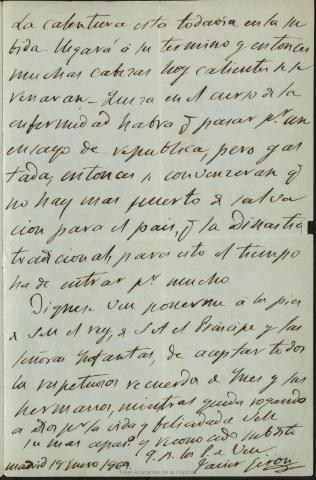 La calentura esta todavia en la su
bida. llegará á su termino y entonces
muchas cabezas hoy calientes se se
renaran - Quiza en el curso de la
enfermedad habra q pasar pr un
ensayo de republica, pero gas
tada, entonces se convenceran q
no hay mas puerto de salva
cion para el pais, q la Dinastia
tradicional; para esto el tiempo
ha de entrar pr mucho
Dignese V.M. ponerme á los pies
de S.M. el rey, de S.A. el Principe y las
Señoras Infantas, de aceptar todos
los respetuosos recuerdos de Ynes y sus
hermanos, mientras queda rogando
a Dios pr la vida y felicidad de V.M.
su mas apas. y reconocido subdito
Q.B. los P. de V.M.
Madrid 19 Enero 1869. Javier Giron
Real Academia de la Historia